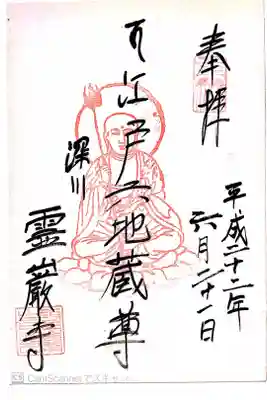 奉拝
平成二十二年
六月二十一日
江戸六地蔵尊
深川
霊巌寺
CamScannerでスキャン